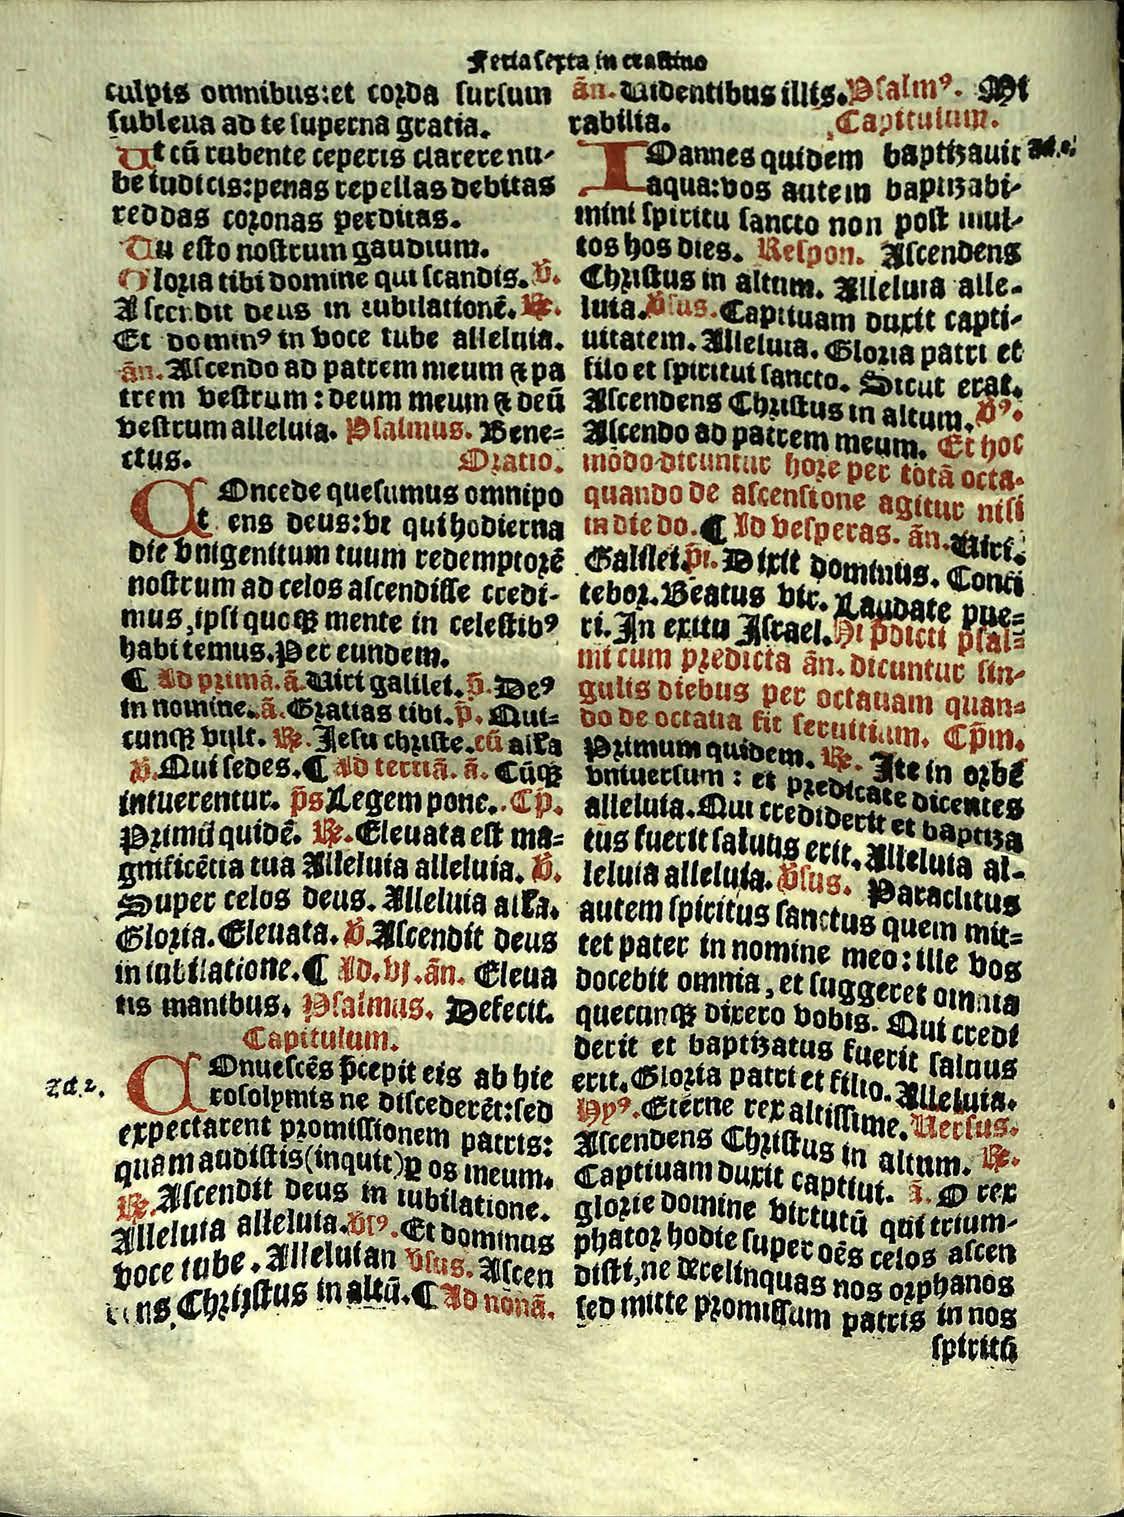 Feria sexta in crastino
culpis omnibus:et corda sursum
subleua ad te superna gratia.
Ut cū rubente ceperis clarere nu-
be iudicis:penas repellas debitas
reddas coronas perditas.
Tu esto nostrum gaudium.
Gloria tibi domine qui scandis. ℣.
Ascendit deus in iubilatione̅. ℟.
Et dominꝰ in voce tube alleluia.
an̄. Ascendo ad patrem meum ⁊ pa
trem vestrum : deum meum ⁊ deū
vestrum alleluia. Psalmus. Bene=
ctus. Oratio.
COncede quesumus omnipo
tens deus:vt qui hodierna
die vnigenitum tuum redemptorē
nostrum ad celos ascendisse credi-
mus, ipsi quoqꝫ mente in celestibꝰ
habitemus. Per eundem.
¶ Ad primā. ā. Uiri galilei. p̄. Deꝰ
in nomine. ā. Gratias tibi. p̄. Qui=
cunqꝫ vult. ℟. Jesu christe. cū alľa
℣. Qui sedes. ¶ Ad tertiā. ā. Cūqꝫ
intuerentur. p̄s Legem pone. Cp̄.
Primū quidē. ℟. Eleuata est ma=
gnificētia tua Alleluia alleluia. ℣.
Super celos deus. Alleluia alľa.
Gloria. Eleuata. ℣. Ascendit deus
in iubilatione. ¶ Ad. vj. an̄. Eleua
tis manibus. Psalmus. Defecit.
Capitulum.
Act. 1.
COnuescēs p̄cepit eis ab hie
rosolymis ne discederēt:sed
expectarent promissionem patris:
quam audistis (inquit) ꝑ os meum.
℟. Ascendit deus in iubilatione.
Alleluia alleluia. ℣sꝰ. Et dominus
voce tube. Alleluian ℣sus. Ascen
dens Christus in altū. ¶ Ad nonā.
an̄. Uidentibus illis. Psalmꝰ. Mi
rabilia. Capitulum.
IOannes quidem baptizauit
aqua:vos autem baptizabi-
mini spiritu sancto non post mul-
tos hos dies. Respon. Ascendens
Christus in altum. Alleluia alle-
luia. ℣sus. Captiuam duxit capti-
uitatem. Alleluia. Gloria patri et
filio et spiritui sancto. Sicut erat.
Ascendens Christus in altum. ℣ꝰ.
Ascendo ad patrem meum. Et hoc
modo dicuntur hore per totā octa.
quando de ascensione agitur nisi
in die do. ¶ Ad vesperas. ān. Uiri.
Galilei. p̄s. Dixit dominus. Confi
tebor. Beatus vir. Laudate pue=
ri. In exitu Israel. Hi p̄dicti psal=
mi cum predicta ān. dicuntur sin-
gulis diebus per octauam quan=
do de octaua fit seruitium. Cp̄m.
Primum quidem. ℟. Ite in orbē
vniuersum : et predicate dicentes
alleluia. Qui crediderit et baptiza
tus fuerit saluus erit. Alleluia al-
leluia alleluia. ℣sus. Paraclitus
autem spiritus sanctus quem mit=
tet pater in nomine meo : ille vos
docebit omnia, et suggeret omnia
quecunqꝫ dixero vobis. Qui credi
derit et baptizatus fuerit saluus
erit. Gloria patri et filio. Alleluia.
Hyꝰ. Eterne rex altissime. Uersus.
Ascendens Christus in altum. ℟.
Captiuam duxit captiui. ā. O rex
glorie domine virtutū qui trium-
phator hodie super oēs celos ascen
disti, ne derelinquas nos orphanos
sed mitte promissum patris in nos
spiritū